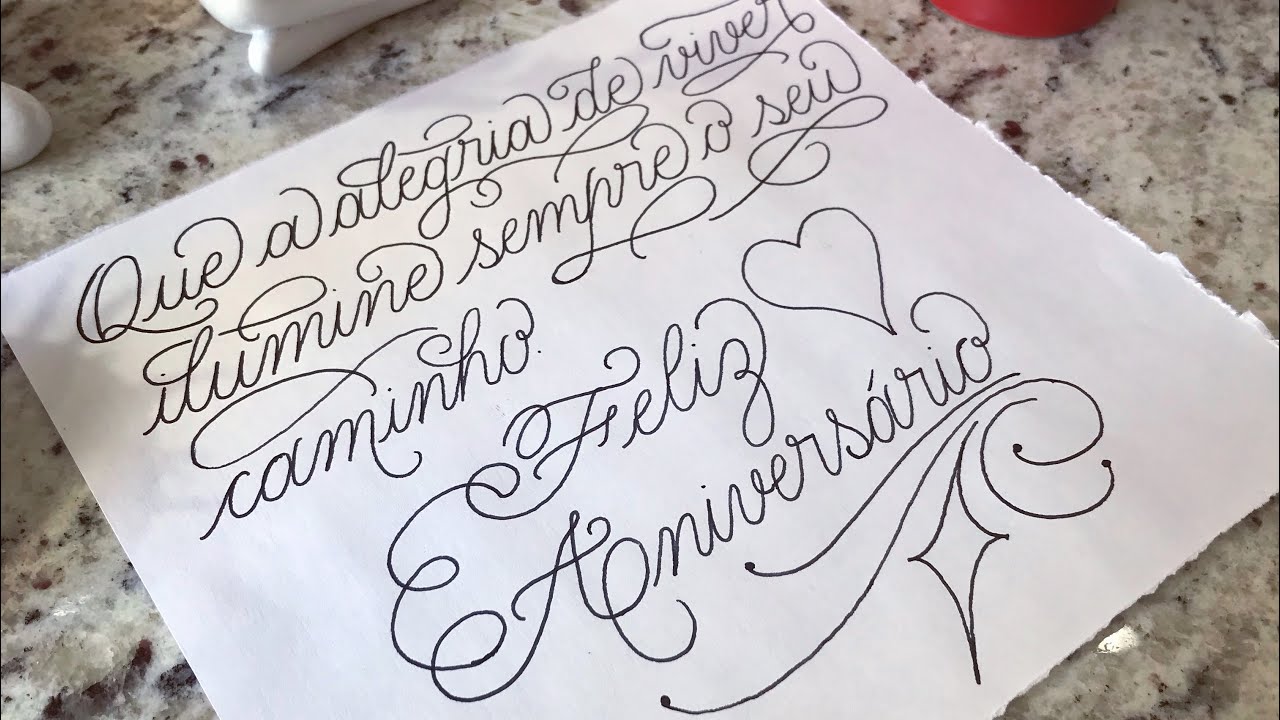 Que a alegria de viver
ilumine sempre o seu
caminho.
Feliz
Aniversário